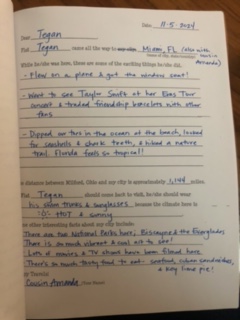 Date: 11-5-2024
Dear Tegan
Flat Tegan came all the way to Miami, FL (also with Martin
Amanda)
While he/she was here, these are some of the exciting things he/she did.
- Flew on a plane & got the window seat!
- Went to see Taylor Swift at her Eras Tour
concert & traded friendship bracelets with other
fans
- Dipped our toes in the ocean at the beach, looked
for seashells & shark teeth, & hiked a nature
trail. Florida feels so tropical!!
distance between Milford, Ohio and my city is approximately 1,144 miles.
If Tegan should come back to visit, he/she should wear
his swim trunks & sunglasses because the climate here is
HOT & sunny
other interesting facts about my city include:
There are two National Parks here; Biscayne & the Everglades
There is so much vibrant & cool art to see!
Lots of movies & TV shows have been filmed here
There's so much tasty food to eat - seafood, cuban sandwiches,
& Key lime pie!
Cousin Amanda